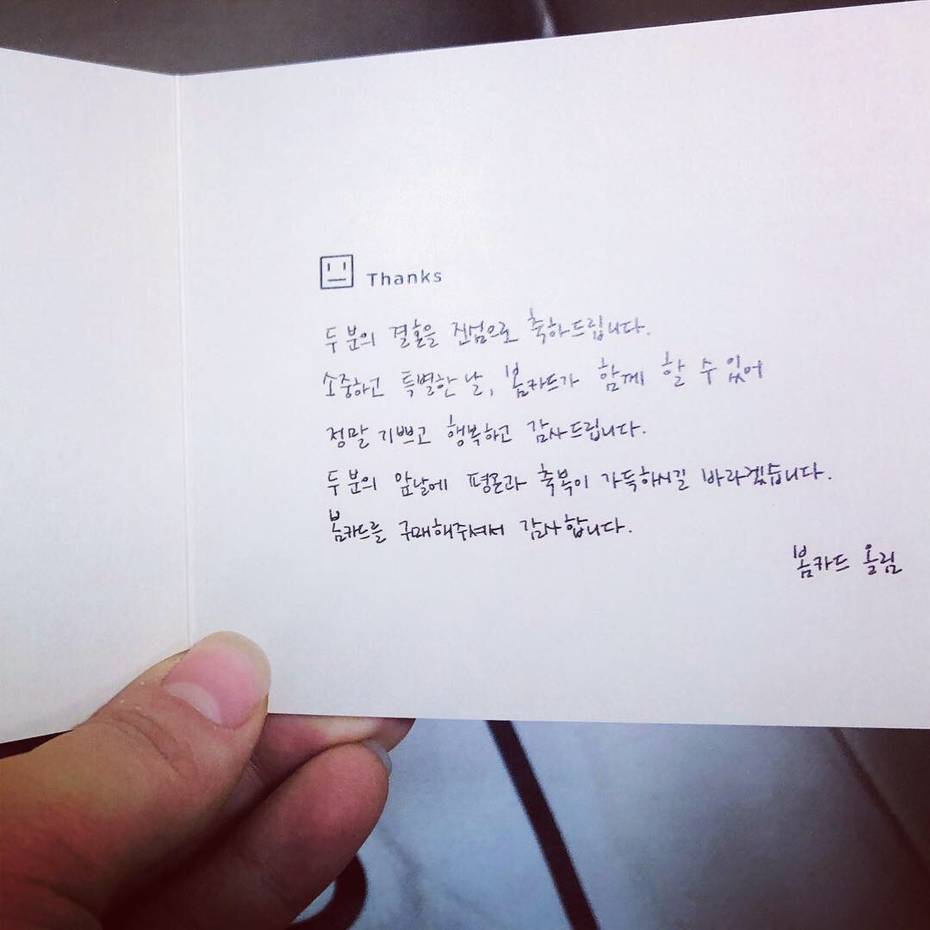 Thanks
두분의 결혼을 진심으로 축하드립니다.
소중하고 특별한 날, 봄카드가 함께 할 수 있어
정말 기쁘고 행복하고 감사드립니다.
두분의 앞날에 평온과 축복이 가득하시길 바라겠습니다.
봄카드를 구매해주셔서 감사합니다.
봄카드 올림